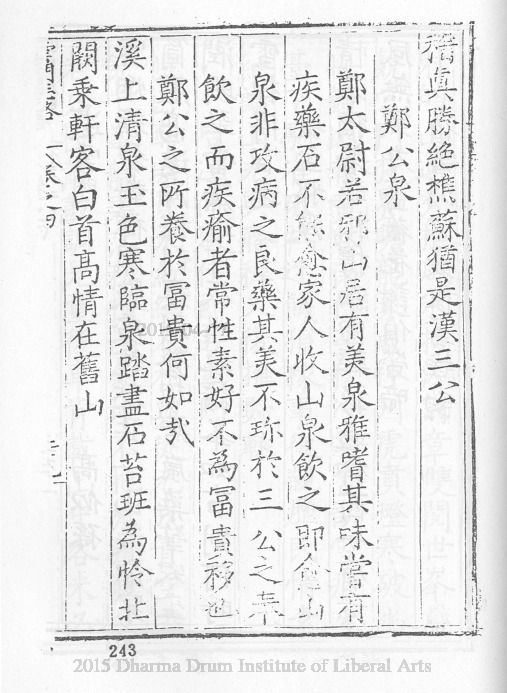 稽真勝絶樵蘇猶是漢三公
鄭公泉
鄭太尉若邪山居有美泉雅嗜其味嘗有
疾藥石不能愈家人收山泉飲之即愈山
泉非攻病之良藥其美不珎於三公之奉
飲之而疾瘉者常性素好不為冨貴移也
鄭公之所養於冨貴何如㢤
溪上清泉玉色寒臨泉踏盡石苔班為怜北
闕乗軒客白首髙情在舊山
卷之四
243
2015 Dharma Drum Institute of Liberal Arts